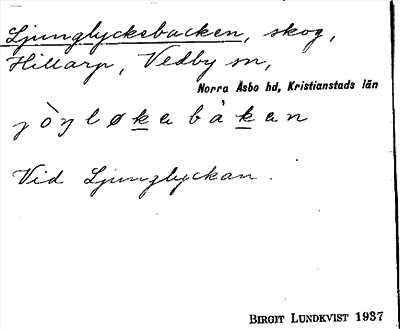 Ljunglyckebacken, skog,
Hillarp, Vedby sn,
Norra Åsbo hd, Kristianstads län
Vid Ljunglyckan.
BIRGIT LUNDKVIST 1937